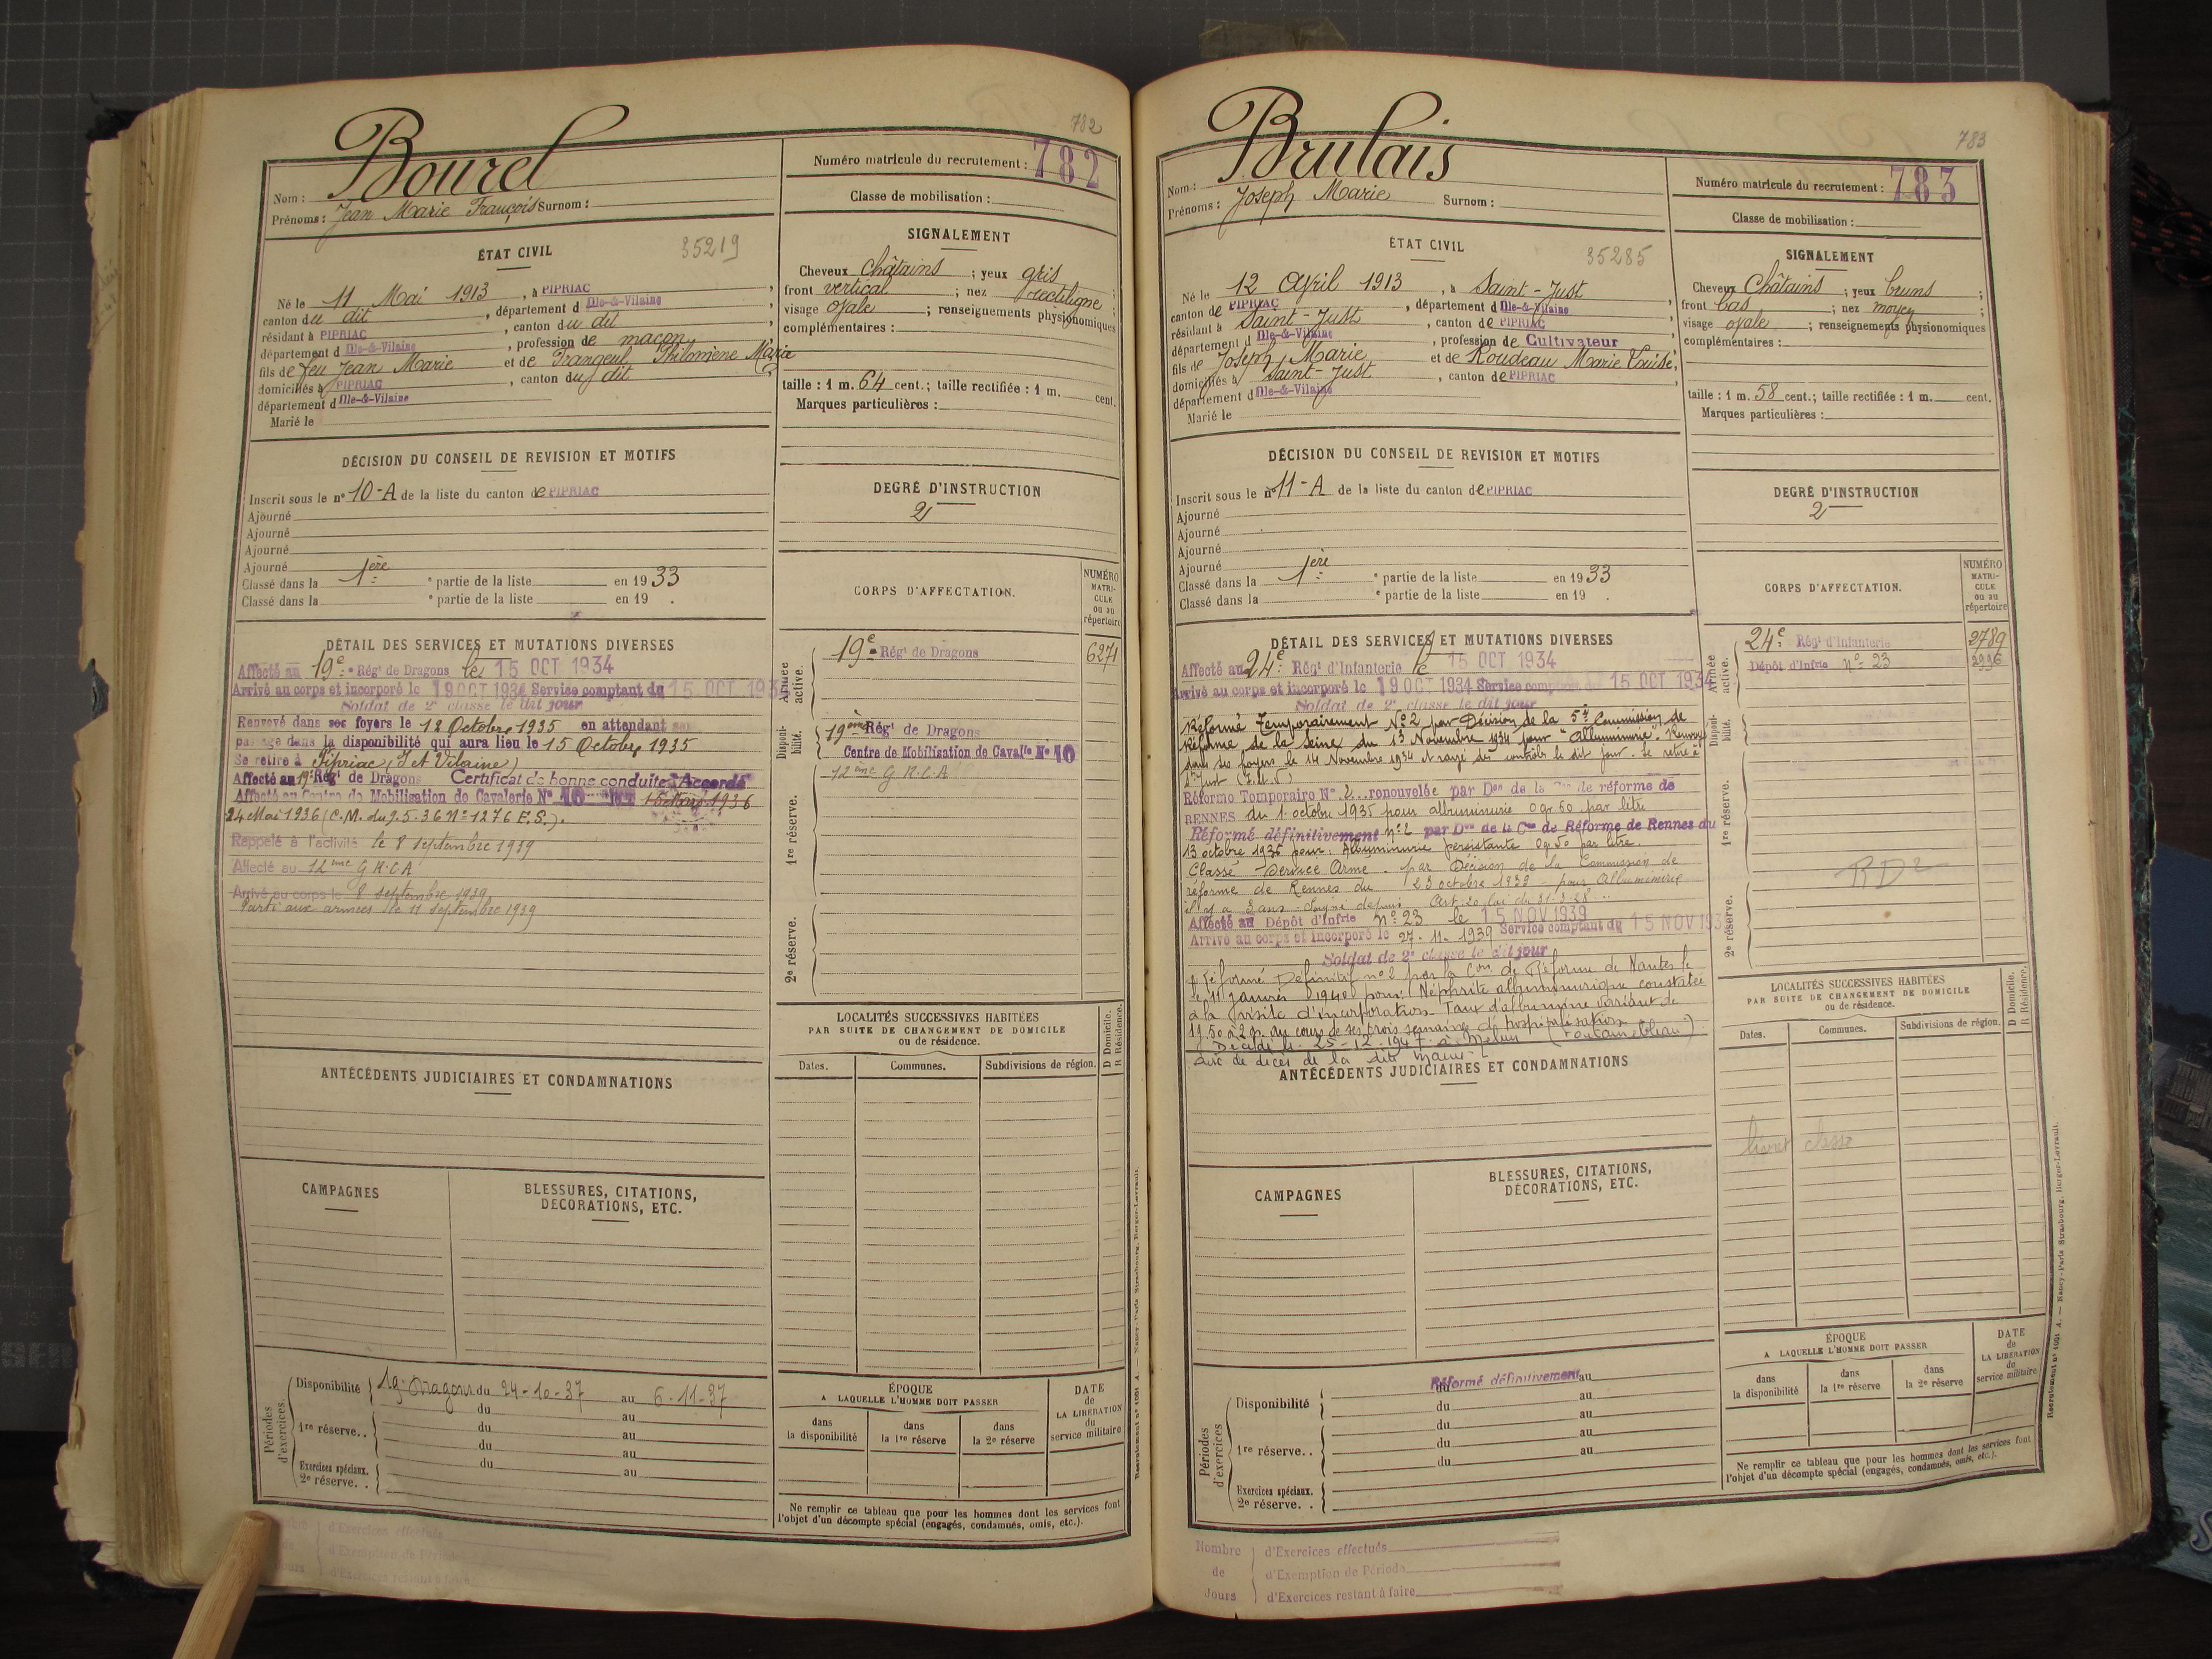 782
Bourel
Nom :
Prénoms : Jean Marie François Surnom :
Numéro matricule du recrutement : 782
Classe de mobilisation :
ÉTAT CIVIL
35219
Né le 11 Mai 1913, à PIPRIAC
canton du dit, département d Ille-&-Vilaine
résidant à PIPRIAC, canton du dit
département d Ille-&-Vilaine, profession de maçon
fils de feu Jean Marie et de Frangeul Philomène Marie
domiciliés à PIPRIAC, canton du dit
département d Ille-&-Vilaine
Marié le
SIGNALEMENT
Cheveux Châtains ; yeux gris ;
front vertical ; nez rectiligne ;
visage ovale ; renseignements physionomiques
complémentaires :
taille : 1 m. 64 cent. ; taille rectifiée : 1 m. cent.
Marques particulières :
DÉCISION DU CONSEIL DE REVISION ET MOTIFS
Inscrit sous le n° 10-A de la liste du canton de PIPRIAC
Ajourné
Ajourné
Ajourné
Ajourné
Classé dans la 1ère e partie de la liste en 1933
Classé dans la e partie de la liste en 19 .
DEGRÉ D'INSTRUCTION
2
DÉTAIL DES SERVICES ET MUTATIONS DIVERSES
Affecté au 19e Régt de Dragons le 15 OCT 1934
Arrivé au corps et incorporé le 19 OCT 1934 Service comptant du 15 OCT 1934
Soldat de 2e classe le dit jour
Renvoyé dans ses foyers le 12 Octobre 1935 en attendant son
passage dans la disponibilité qui aura lieu le 15 Octobre 1935
Se retire à Pipriac (I et Vilaine)
Affecté au 19e Régt de Dragons Certificat de bonne conduite "Accordé"
Affecté au Centre de Mobilisation de Cavalerie N° 10 1936
24 Mai 1936 (C.M. du 9.5.36 N° 1276 E.S.).
Rappelé à l'activité le 8 septembre 1939
Affecté au 12ème G R C A
Arrivé au corps le 8 septembre 1939
Parti aux armées le 11 septembre 1939
CORPS D'AFFECTATION.
NUMÉRO MATRICULE ou au répertoire
Armée active.
19e Régt de Dragons 6271
Disponibilité.
19ème Régt de Dragons
Centre de Mobilisation de Cavalie N° 10
12ème G R C A
1re réserve.
2e réserve.
LOCALITÉS SUCCESSIVES HABITÉES
PAR SUITE DE CHANGEMENT DE DOMICILE
ou de résidence.
D Domicile.
R Résidence.
Dates. Communes. Subdivisions de région.
ANTÉCÉDENTS JUDICIAIRES ET CONDAMNATIONS
CAMPAGNES
BLESSURES, CITATIONS,
DÉCORATIONS, ETC.
Périodes d'exercices.
Disponibilité 19e Dragons du 24-10-37 au 6-11-37
du au
1re réserve. . du au
du au
Exercices spéciaux.
2e réserve. . du au
ÉPOQUE
A LAQUELLE L'HOMME DOIT PASSER
dans la disponibilité
dans la 1re réserve
dans la 2e réserve
DATE de LA LIBÉRATION du service militaire
Ne remplir ce tableau que pour les hommes dont les services font
l'objet d'un décompte spécial (engagés, condamnés, omis, etc.).
d'Exercices effectués
d'Exemption de Période
d'Exercices restant à faire
783
Brulais
Nom :
Prénoms : Joseph Marie Surnom :
Numéro matricule du recrutement : 783
Classe de mobilisation :
ÉTAT CIVIL
35285
Né le 12 Avril 1913, à Saint-Just
canton de PIPRIAC, département d Ille-&-Vilaine
résidant à Saint-Just, canton de PIPRIAC
département d Ille-&-Vilaine, profession de Cultivateur
fils de Joseph Marie et de Roudeau Marie Louise,
domiciliés à Saint-Just, canton de PIPRIAC
département d Ille-&-Vilaine
Marié le
SIGNALEMENT
Cheveux Châtains ; yeux bruns ;
front bas ; nez moyen ;
visage ovale ; renseignements physionomiques
complémentaires :
taille : 1 m. 58 cent. ; taille rectifiée : 1 m. cent.
Marques particulières :
DÉCISION DU CONSEIL DE REVISION ET MOTIFS
Inscrit sous le n° 11-A de la liste du canton de PIPRIAC
Ajourné
Ajourné
Ajourné
Ajourné
Classé dans la 1ère e partie de la liste en 1933
Classé dans la e partie de la liste en 19 .
DEGRÉ D'INSTRUCTION
2
DÉTAIL DES SERVICES ET MUTATIONS DIVERSES
Affecté au 24e Régt d'Infanterie le 15 OCT 1934
Arrivé au corps et incorporé le 19 OCT 1934 Service comptant du 15 OCT 1934
Soldat de 2e classe le dit jour
Réformé Temporairement N°2 par Décision de la 5e Commission de
Réforme de la Seine du 13 Novembre 1934 pour "Albuminurie". Renvoyé
dans ses foyers le 14 Novembre 1934 et rayé des contrôles le dit jour. Se retire à
St Just (I.et.V)
Réforme Temporaire N° 2 renouvelée par Don de la Con de réforme de
RENNES du 1 octobre 1935 pour albuminurie 0 gr 60 par litre
Réformé définitivement n°2 par Don de la Con de Réforme de Rennes du
13 octobre 1936 pour: Albuminurie persistante 0gr50 par litre.
Classé Service Armé par Décision de la Commission de
réforme de Rennes du 23 octobre 1939 pour Albuminurie
il y a 3 ans
Affecté au Dépôt d'Infrie N° 23 le 15 NOV 1939
Arrivé au corps et incorporé le 27-11-1939 Service comptant du 15 NOV 1939
Soldat de 2e classe le dit jour
Réformé Définitif n°2 par la Con de Réforme de Nantes le
le 11 janvier 1940 pour: Néphrite albuminurique constatée
à la visite d'incorporation. Taux d'albumine variant de
1g.50 à 2 gr. au cours de ses trois semaines d'hospitalisation
Décédé le 25-12-1947 à Melun
Avis de décès de la dite mairie
CORPS D'AFFECTATION.
NUMÉRO MATRICULE ou au répertoire
Armée active.
24e Régt d'Infanterie 2789
Dépôt d'Infrie N° 23 2996
Disponibilité.
1re réserve.
RD2
2e réserve.
LOCALITÉS SUCCESSIVES HABITÉES
PAR SUITE DE CHANGEMENT DE DOMICILE
ou de résidence.
D Domicile.
R Résidence.
Dates. Communes. Subdivisions de région.
livret classé
ANTÉCÉDENTS JUDICIAIRES ET CONDAMNATIONS
CAMPAGNES
BLESSURES, CITATIONS,
DÉCORATIONS, ETC.
Périodes d'exercices
Réformé définitivement
Disponibilité du au
du au
1re réserve. . du au
du au
Exercices spéciaux.
2e réserve. . du au
ÉPOQUE
A LAQUELLE L'HOMME DOIT PASSER
dans la disponibilité
dans la 1re réserve
dans la 2e réserve
DATE de LA LIBÉRATION du service militaire
Ne remplir ce tableau que pour les hommes dont les services font
l'objet d'un décompte spécial (engagés, condamnés, omis, etc.).
Recrutement n° 1091 A. — Nancy-Paris Strasbourg, Berger-Levrault.
Nombre de Jours
d'Exercices effectués
d'Exemption de Période
d'Exercices restant à faire